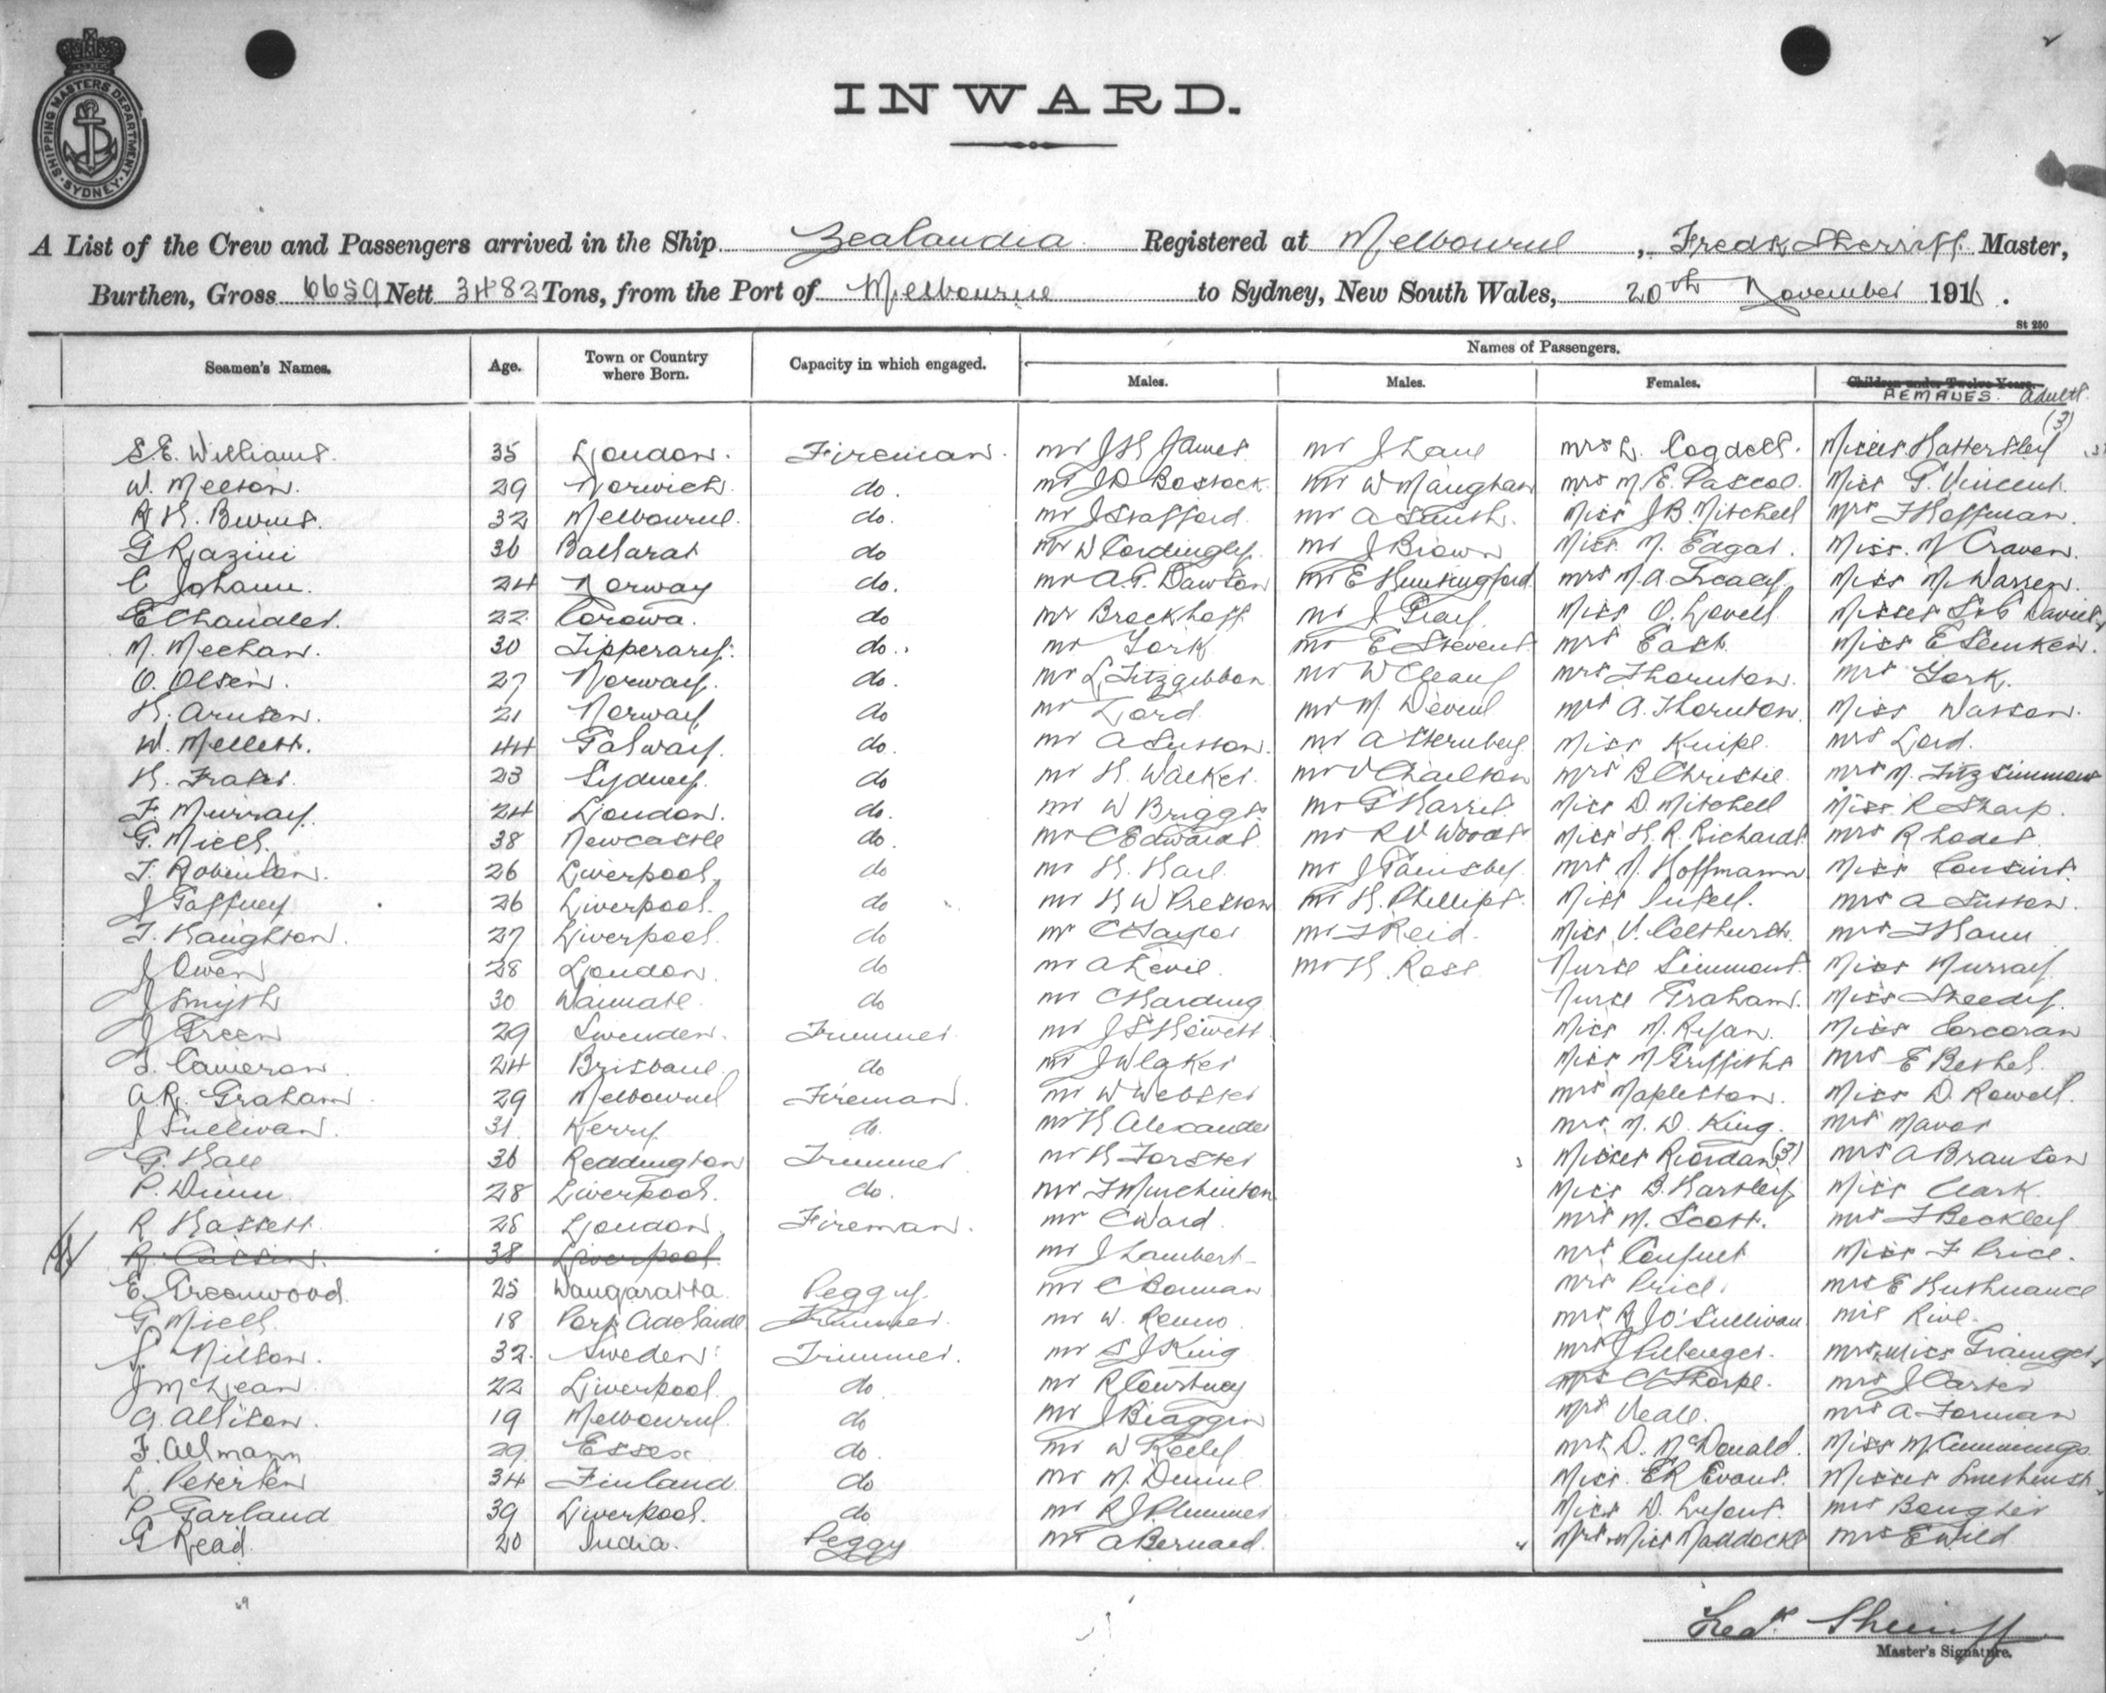 SHIPPING MASTERS DEPARTMENT
SYDNEY
INWARD.
A List of the Crew and Passengers arrived in the Ship Zealandia Registered at Melbourne, Fredk Sherriff Master,
Burthen, Gross 6659 Nett 3482 Tons, from the Port of Melbourne to Sydney, New South Wales, 20th November 1916.
St 250
Seamen's Names. Age. Town or Country where Born. Capacity in which engaged. Names of Passengers.
Males. Males. Females. Children under Twelve Years. FEMALES. Adults.
(3)
S E. Williams. 35 London. Fireman. Mr J H James Mr J Lane Mrs L. Cogdell. Misses Hattersley
W. Meeson. 29 Norwich do. Mr J D Bostock Mr W Maughan Mrs M. E. Pascoe. Miss G. Vincent.
R H. Burns. 32 Melbourne. do. Mr J Stafford. Mr A Smith. Miss J B. Mitchell Mrs J Hoffman.
G Razini 36 Ballarat do Mr W Cordingley. Mr J Brown Miss. M. Edgar. Miss. M Craven.
C Johann. 24 Norway do. Mr A. G. Dawson Mr E Hemmingford. Mrs M. A. Treacy. Miss M. Warren.
E Chandler. 22 Corowa. do Mr Brockhoff Mr J Gray. Miss O. Lovell. Misses S & C Davies
M. Meehan. 30 Tipperary. do. Mr York. Mr E Stevens Mrs East. Miss E
O. Olsen. 27 Norway. do. Mr L Fitzgibbon Mr W Cleary Mrs Thornton. Mrs York.
H. Arnsen. 21 Norway, do Mr Lord Mr M. Mrs A. Thornton. Miss Wasson.
W. Mellett. 44 Galway. do. Mr A Susson. Mr A Sternberg Miss Knipe. Mrs Lord.
H. Fraser. 23 Sydney. do Mr H. Walker. Mr V Charlton Mrs B Christie. Mrs M. Fitzsimmons
F. Murray. 24 London. do. Mr W Briggs. Mr G Harris. Miss D. Mitchell Miss. R Sharp.
G. Miell. 38 Newcastle do. Mr C Edwards. Mr R V Woods Miss H. R. Richards. Mrs Rhodes.
T. Robinson. 26 Liverpool. do Mr H. Hail Mr J Gainsby. Mrs M. Hoffmann Miss Cousins.
J Gaffney 26 Liverpool. do Mr H W Preston Mr H. Phillips. Miss Mrs A Susson.
T. Haughton. 27 Liverpool. do Mr C Taylor Mr J Reid. Miss V. Colthurst. Mrs J Hann
J Owen 28 London. do Mr A Levie. Mr H. Ross Nurse Simmons. Miss Murray.
J Smyth 30 Waimate. do Mr C Harding Nurse Graham. Miss Sheedy.
J Green 29 Swinden. Trimmer. Mr J S Hewett. Miss M. Ryan. Miss Corcoran
T. Cameron. 24 Brisbane. do Mr J W Laker Miss M Griffiths Mrs E Bethel.
A R. Graham. 29 Melbourne Fireman. Mr W Webster Mrs Mapleston. Miss D. Rowell.
J Sullivan. 31. Kerry. do. Mr H Alexander Mrs. M. D. King. Mrs Mavor
G. Hall 36 Reddington Trimmer. Mr H Forster Misses Riordan (3) Mrs A Branson
P. Dunn. 28 Liverpool. do. Mr J Murchinton Miss B. Hartley Miss Clark.
R Hassett 28 London. Fireman. Mr C Ward. Mrs M. Scott. Mrs J Beckley
R. Cassin. 38 Liverpool. Mr J Lambert Mrs Miss F Price.
E. Greenwood. 25 Wangaratta. Peggy. Mr C Bowman Mrs Price. Mrs E Hushnance
G. Miell. 18 Port Adelaide Trimmer. Mr W. Renno. Mrs R J O'Sullivan Mrs Rive.
S. Nilson. 32. Sweden. Trimmer. Mr S J King Mrs J Mrs & Miss Grainger
J McLean 22 Liverpool. do. Mr R Courtney Mrs C Thorpe. Mrs J Carter
G. Allison. 19 Melbourne. do Mr J Biaggin Mrs Veale. Mrs A Forman
F. Allmann 29. Essex do. Mr W Kelly Mrs. D. McDonald. Miss M Cummings
L. Petersen 34 Finland do Mr M. Dunne Miss. E R Evans. Misses
P Garland 39 Liverpool. do Mr R J Plummer Miss D. Mrs
G Read. 20 India. Peggy Mr A Bernard. Mrs & Miss Maddocks Mrs E Wild
Fredk Sherriff
Master's Signature.